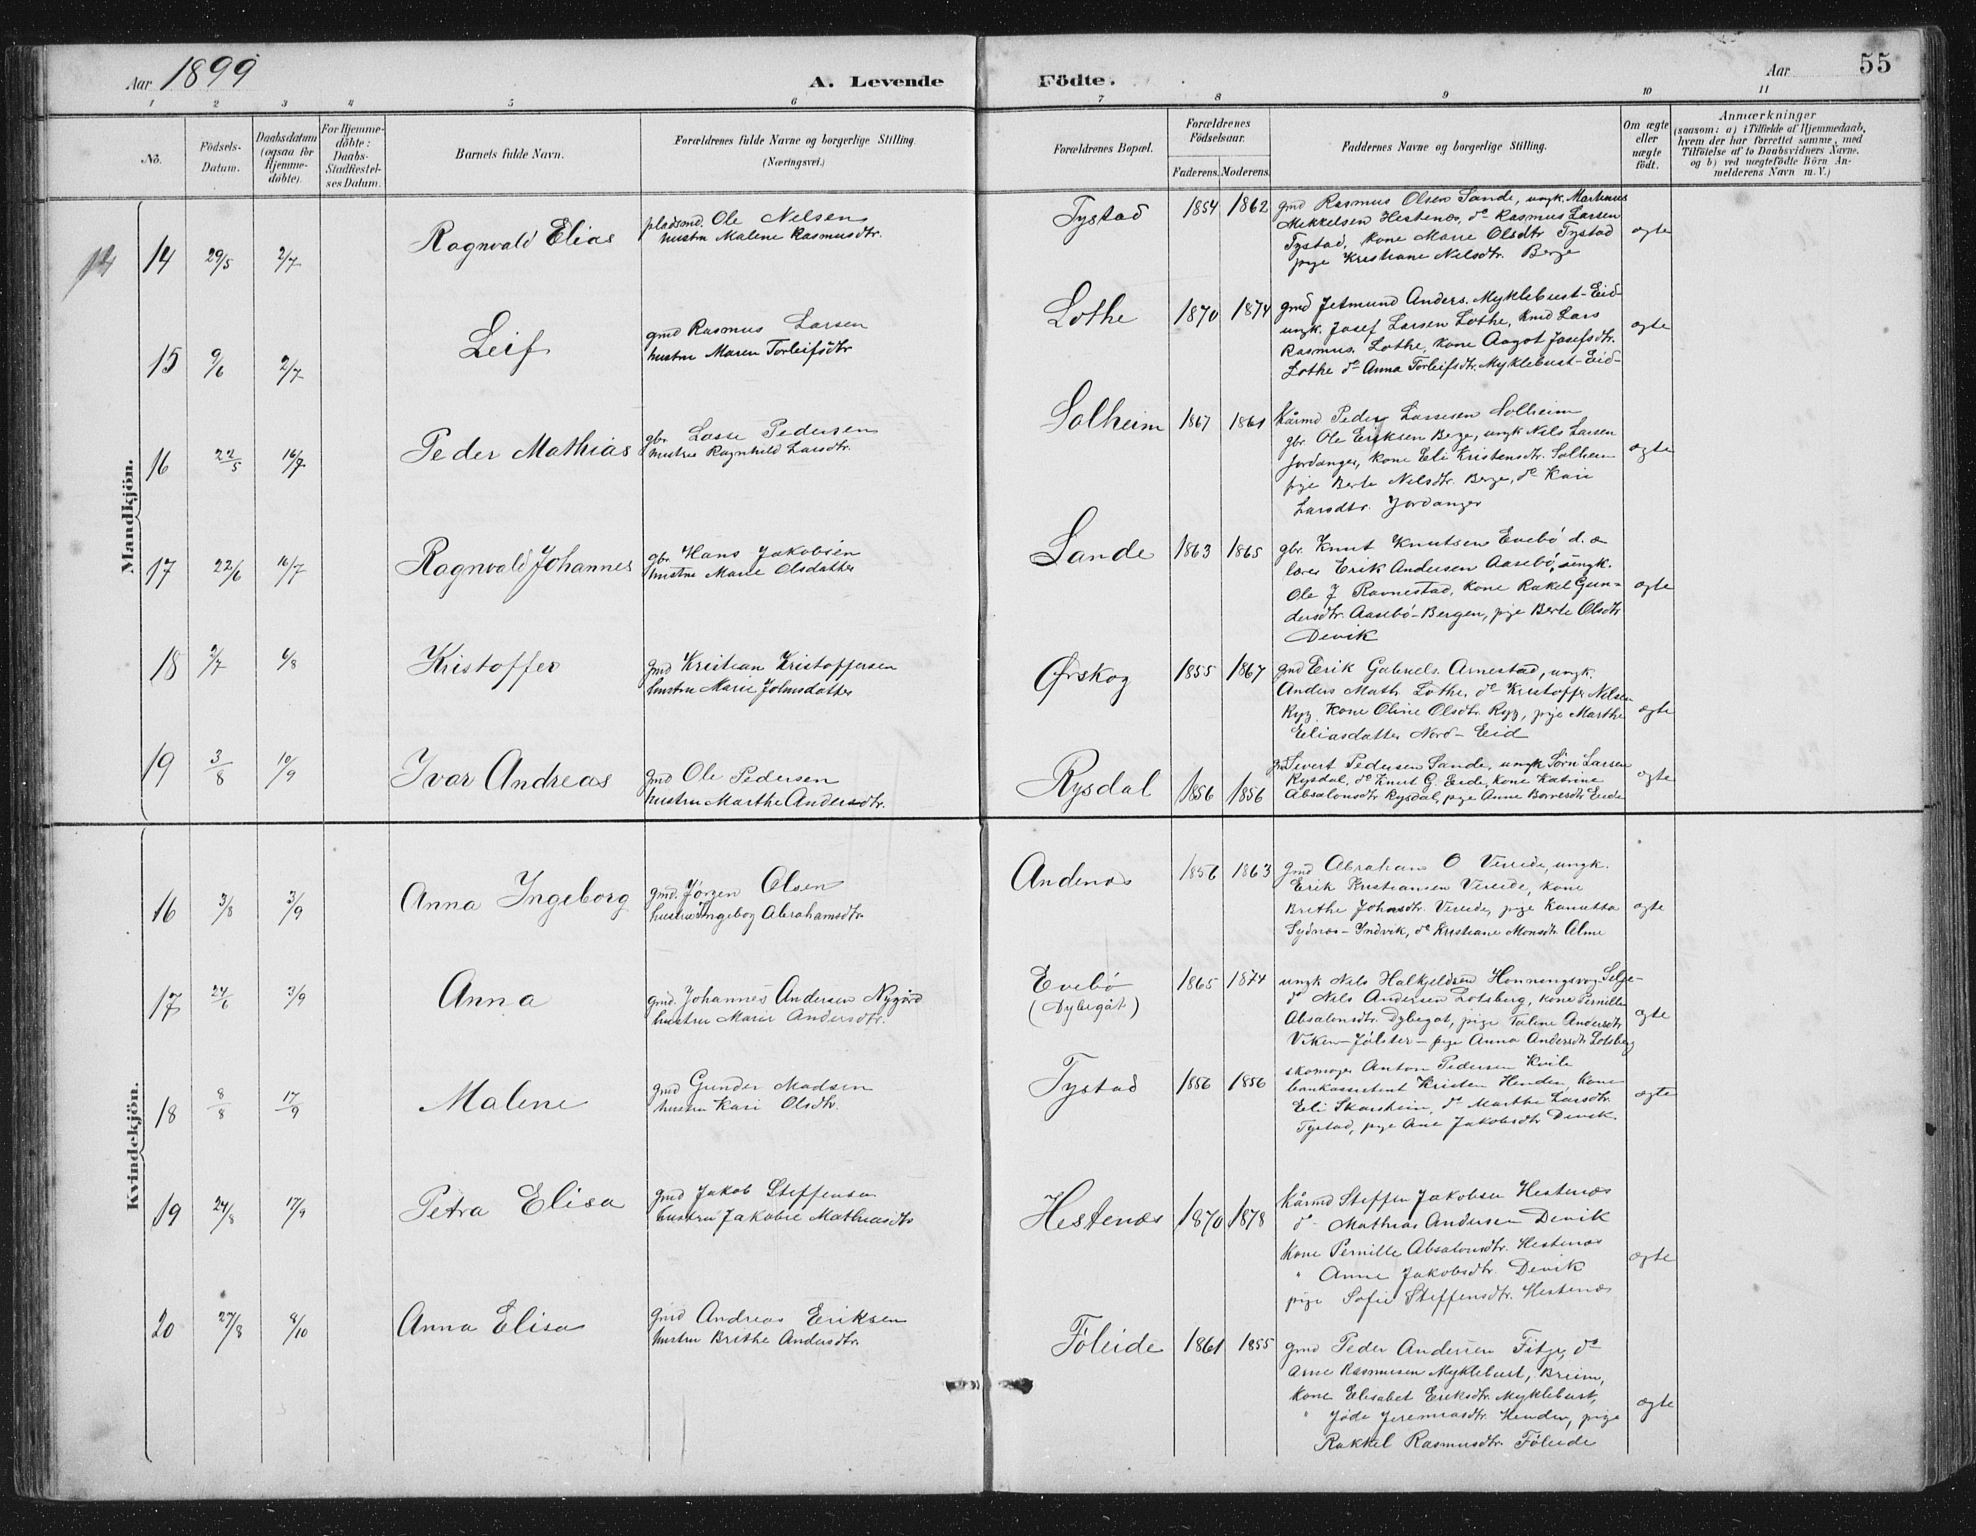 Aar 1899
A. Levende Födte.
Aar 55
1 2 3 4 5 6 7 8 9 10 11
No.
Födsels-Datum.
Daabsdatum (ogsaa för Hjemme-döbte).
For Hjemme-döbte: Daabs-Stadfæstel-ses Datum.
Barnets fulde Navn.
Forældrenes fulde Navne og borgerlige Stilling
(Næringsvei.)
Forældrenes Bopæl.
Forældrenes Födselsaar.
Faderens. Moderens.
Faddernes Navne og borgerlige Stilling.
Om ægte eller uægte födt.
Anmærkninger
(saasom: a) i Tilfælde af Hjemmedaab,
hvem der har forrettet samme, med
Tilföielse af to Daabsvidners Navne.
og b) ved uægtefödte Börn An-
melderens Navn m. V.)
Mandkjön.
14 29/5 2/7 Ragnvald Elias
pladsmd. Ole Nilsen
hustru Malene Rasmusdtr.
Tystad 1854 1862
gmd Rasmus Olsen Sande, ungk. Martinus
Mikkelsen Hestenæs, do Rasmus Larsen
Tystad, kone Marie Olsdtr Tystad
pige Kristiane Nilsdtr. Berge
ægte
15 9/6 2/7 Leif
gmd Rasmus Larsen
hustru Maren Torleifsdtr
Lothe 1870 1874
gmd Jetmund Anders. Myklebust-Eid-
ungk. Josef Larsen Lothe, Lars
Rasmus. Lothe, kone Aagot Josefsdtr.
Lothe do Anna Torleifsdtr. Myklebust-Eid-
ægte
16 22/5 16/7 Peder Mathias
gbr. Lasse Pedersen
hustru Ragnhild Larsdtr.
Solheim 1867 1861
kårmd Peder Lassesen Solheim
gbr Ole Eriksen Berge, ungk Nils Larsen
Jordanger, kone Eli Kristensdtr. Solheim
pige Berte Nilsdtr. Berge, do Kari
Larsdtr. Jordanger
ægte
17 22/6 16/7 Ragnvald Johannes
gbr. Hans Jakobsen
hustru Marie Olsdatter
Sande 1863 1865
gbr. Knut Knutsen Evebö d.æ
lærer Erik Andersen Aasebö, ungk.
Ole J Ravnestad, kone Rakel Gun-
dersdtr. Aasebö-Bergen, pige Berte Olsdtr
Devik
ægte
18 2/7 6/8 Kristoffer
gmd Kristian Kristoffersen
hustru Marie Johnsdatter
Ørskog 1855 1867
gmd Erik Gabriels. Arnestad, ungk.
Anders Math Lothe, do Kristoffer Nilsen
Ryg, kone Oline Olsdtr Ryg, pige Marthe
Eliasdatter Nord-Eid
ægte
19 3/8 10/9 Ivar Andreas
gmd Ole Pedersen
hustru Marthe Andersdtr.
Rysdal 1856 1856
Sivert Pedersen Sande, ungk Sörn Larsen
Rysdal, do Knut G. Eide, kone Katrine
Absalonsdtr Rysdal, pige Anne Eide
ægte
Kvindekjön.
16 3/8 3/9 Anna Ingeborg
gmd. Jörgen Olsen
hustru Ingebog Abrahamsdtr.
Andenæs 1856 1863
gmd Abraham O Vereide, ungk.
Erik Kristiansen Vereide, kone
Brithe Johnsdtr. Vereide, pige
Sydnæs-Indvik, do Kristiane Monsdtr Alme
ægte
17 24/6 3/9 Anna
gmd. Johannes Andersen Nygård
hustru Marie Andersdtr.
Evebö
(Dybegåt)
1865 1874
ungk Nils Halkjeldsen Honningsvog Selje-
do Nils Andersen Lotsberg, kone Pernille
Absalonsdtr. Dybegåt, pige Taline Andersdtr
Viken-Jölster- pige Anna Andersdtr Lotsberg
ægte
18 8/8 17/9 Malene
gmd Gunder Madsen
hustru Kari Olsdtr.
Tystad 1856 1856
skomager Anton Pedersen Kvile
bankassistent Kristen Henden, kone
Eli Skarsheim, do Marthe Larsdtr.
Tystad, pige Ane Jakobsdtr Devik
ægte
19 24/8 17/9 Petra Elisa
gmd Jakob Steffensen
hustru Jakobie Mathiasdtr
Hestenæs 1870 1878
kårmd Steffen Jakobsen Hestenæs
do Mathias Andersen Devik
kone Pernille Absalonsdtr. Hestenæs
" Anne Jakobsdtr. Devik
pige Sofie Steffensdtr. Hestenæs
ægte
20 27/8 8/10 Anna Elisa
gmd Andreas Eriksen
hustru Brithe Andersdtr.
Föleide 1861 1855
gmd Peder Andersen Fitje, do
Arne Rasmusen Myklebust, Breim,
kone Elisabet Eriksdtr. Myklebust,
" Jöde Jeremiasdtr. Henden, pige
Rakkel Rasmusdtr. Föleide
ægte